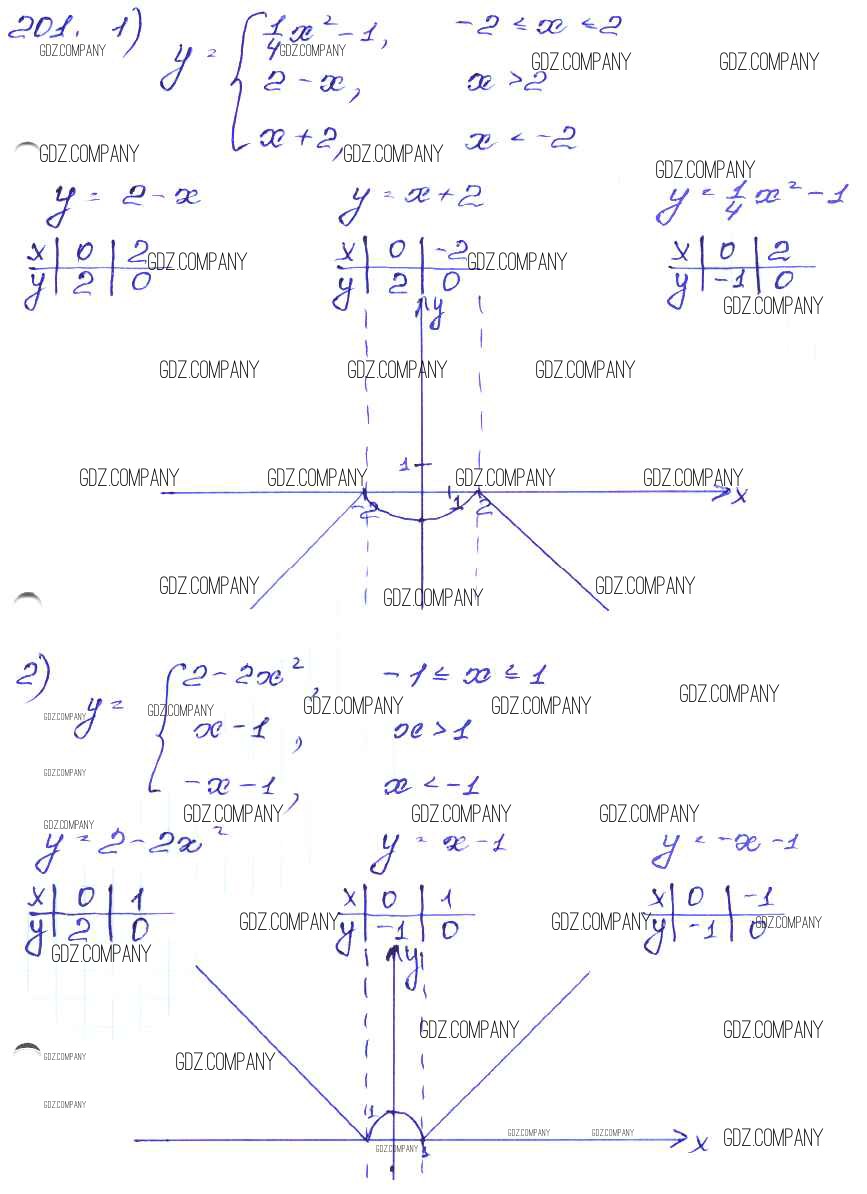 201. 1) y = { 1/4 x² - 1, -2 ≤ x ≤ 2
GDZ.COMPANY GDZ.COMPANY GDZ.COMPANY GDZ.COMPANY
2 - x, x > 2
x + 2, x < -2
GDZ.COMPANY GDZ.COMPANY GDZ.COMPANY
y = 2 - x y = x + 2 y = 1/4 x² - 1
x | 0 | 2 x | 0 | -2 x | 0 | 2
GDZ.COMPANY GDZ.COMPANY
y | 2 | 0 y | 2 | 0 y | -1 | 0
y GDZ.COMPANY
GDZ.COMPANY GDZ.COMPANY GDZ.COMPANY
1
GDZ.COMPANY GDZ.COMPANY GDZ.COMPANY GDZ.COMPANY
-2 1 2 x
GDZ.COMPANY GDZ.COMPANY GDZ.COMPANY
2) y = { 2 - 2x², -1 ≤ x ≤ 1
GDZ.COMPANY GDZ.COMPANY GDZ.COMPANY GDZ.COMPANY GDZ.COMPANY
x - 1, x > 1
GDZ.COMPANY
-x - 1, x < -1
GDZ.COMPANY GDZ.COMPANY GDZ.COMPANY GDZ.COMPANY
y = 2 - 2x² y = x - 1 y = -x - 1
x | 0 | 1 x | 0 | 1 x | 0 | -1
GDZ.COMPANY GDZ.COMPANY GDZ.COMPANY
y | 2 | 0 y | -1 | 0 y | -1 | 0
GDZ.COMPANY y
GDZ.COMPANY GDZ.COMPANY
GDZ.COMPANY GDZ.COMPANY
GDZ.COMPANY 1
GDZ.COMPANY GDZ.COMPANY x GDZ.COMPANY
GDZ.COMPANY 1